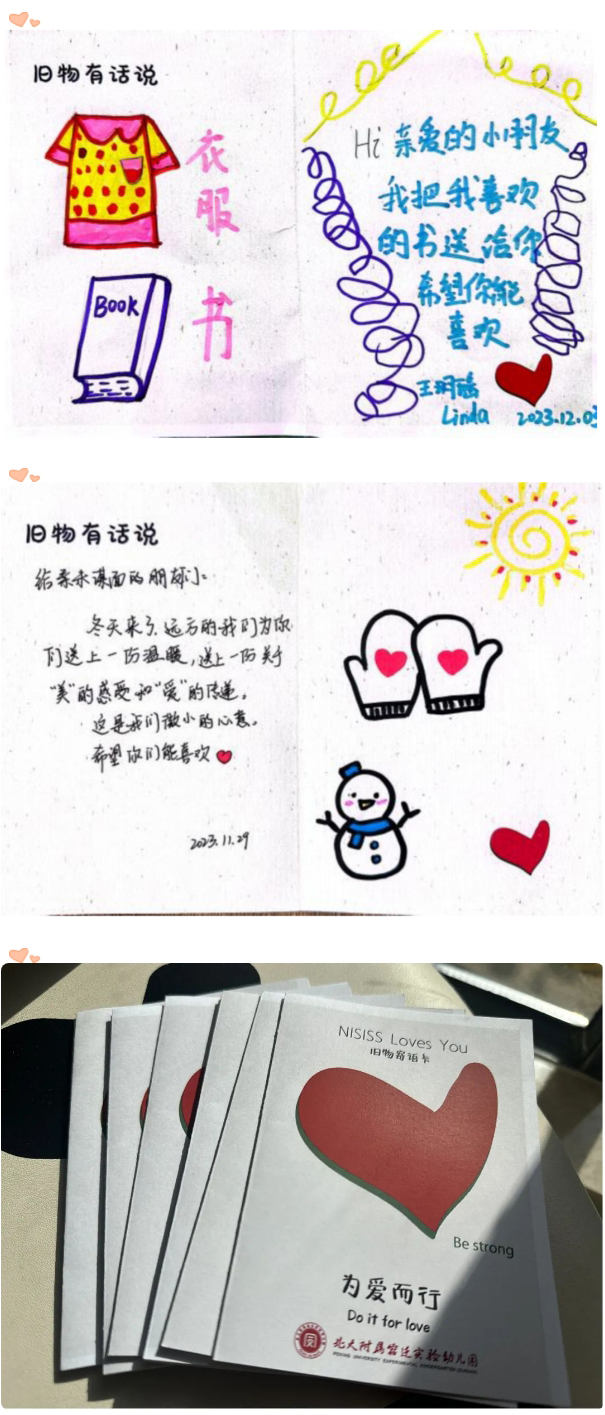 旧物有话说
衣服
书
Book
Hi 亲爱的小朋友
我把我喜欢
的书送给你
希望你能
喜欢
Linda 2023.12.03
旧物有话说
给素未谋面的朋友们:
冬天来了,远方的我们为你
们送上一份温暖,送上一份关于
“美”的感受和“爱”的传递。
这是我们微小的心意。
希望你们能喜欢
2023.11.29
NISISS Loves You
旧物寄语卡
Be strong
为爱而行
Do it for love
北大附属宿迁实验幼儿园